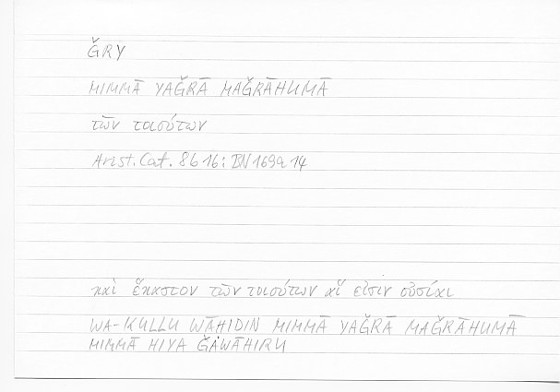 ǦRY
MIMMĀ YAǦRĀ MAǦRĀHUMĀ
τῶν τοιούτων
Arist. Cat. 8b16; BN 169a14
καὶ ἕκαστον τῶν τοιούτων αἵ εἰσιν οὐσίαι
WA-KULLU WĀḤIDIN MIMMĀ YAǦRĀ MAǦRĀHUMĀ
MIMMĀ HIYA ǦAWĀHIRU